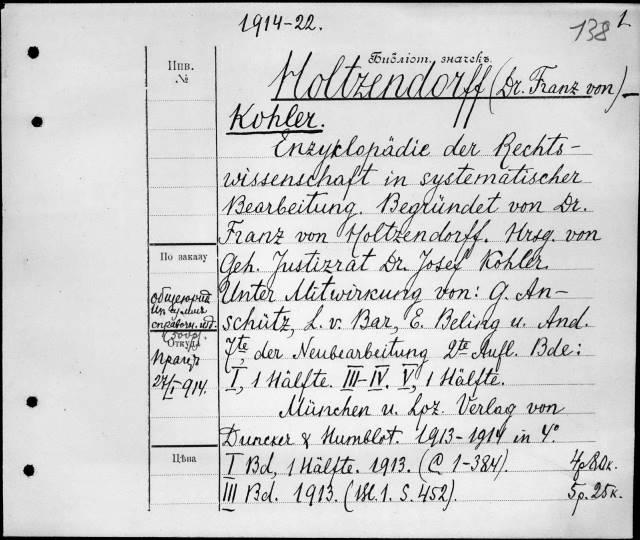 1914-22.
138 1
Инв.
№
Библіот. значекъ.
Holtzendorff (Dr. Franz von) –
Kohler.
Enzyklopädie der Rechts-
wissenschaft in systematischer
Bearbeitung. Begründet von Dr.
Franz von Holtzendorff. Hrsg. von
По заказу
Geh. Justizrat Dr. Josef Kohler.
Unter Mitwirkung von: G. An-
schütz, L. v. Bar, E. Beling u. And.
справочн.
Откуда
7te, der Neubearbeitung 2te Aufl. Bde:
27/I 914.
I, 1 Hälfte. III-IV. V, 1 Hälfte.
München u. Lpz. Verlag von
Duncker & Humblot. 1913-1914 in 4°.
Цѣна
I Bd, 1 Hälfte. 1913. (C 1-384). 4p80к.
III Bd. 1913. (Bl. 1. S. 452). 5p. 25к.